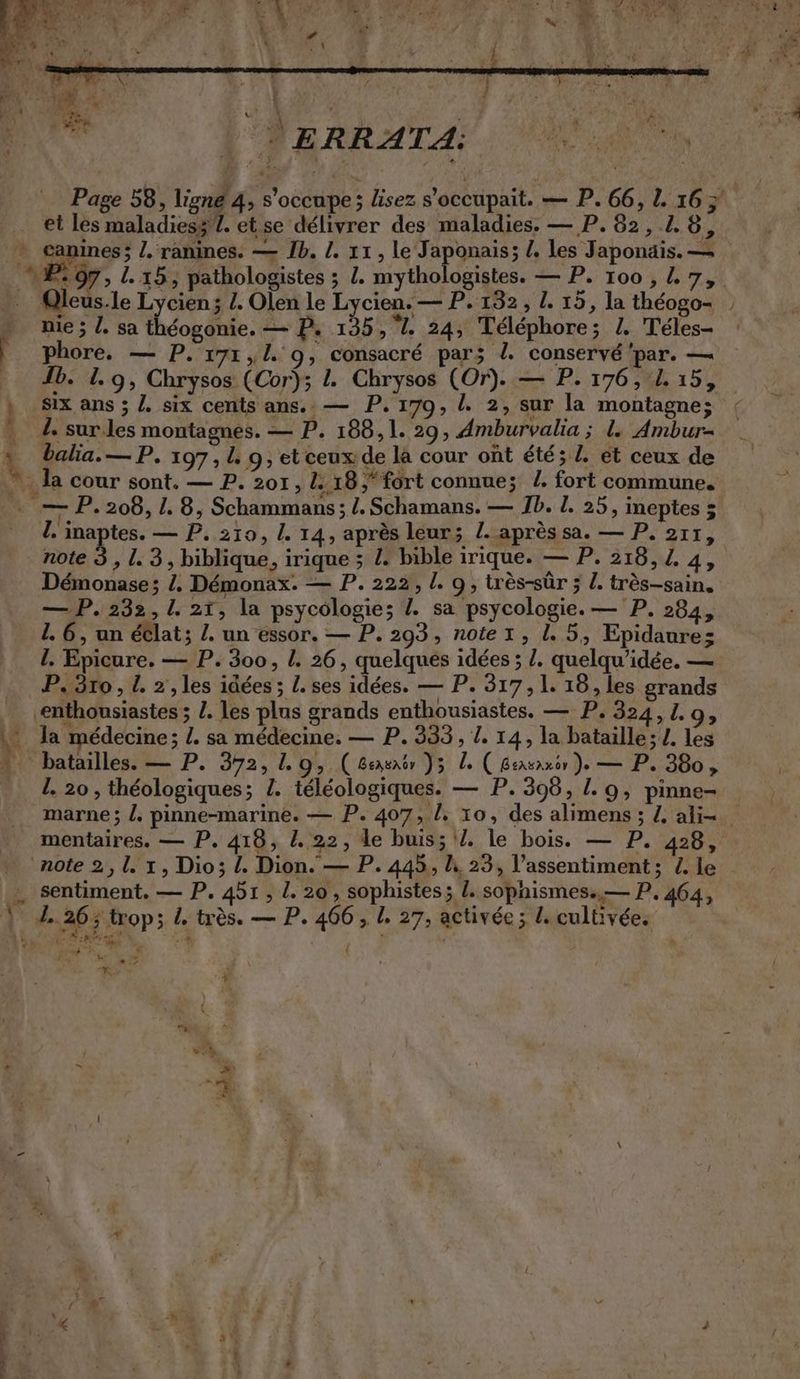 ERRATA:
Page 58, ligne 4, s'occupe; lisez s'occupait. — P. 66, l. 16;
et les maladies; l. et se délivrer des maladies. — P. 82, l. 8,
canines; l. ranines. — Ib. l. 11, le Japonais; l. les Japonais. —
P. 97, l. 15, pathologistes; l. mythologistes. — P. 100, l. 7,
Oleus le Lycien; l. Olen le Lycien. — P. 132, l. 15, la théogo-
nie; l. sa théogonie. — P. 135, l. 24, Téléphore; l. Téles-
phore. — P. 171, l. 9, consacré par; l. conservé par. —
Ib. l. 9, Chrysos (Cor); l. Chrysos (Or). — P. 176, l. 15,
six ans; l. six cents ans. — P. 179, l. 2, sur la montagne;
l. sur les montagnes. — P. 188, l. 29, Amburvalia; l. Ambur-
balia. — P. 197, l. 9, et ceux de la cour ont été; l. et ceux de
la cour sont. — P. 201, l. 18, fort connue; l. fort commune.
— P. 208, l. 8, Schammans; l. Schamans. — Ib. l. 25, ineptes;
l. inaptes. — P. 210, l. 14, après leur; l. après sa. — P. 211,
note 3, l. 3, biblique, irique; l. bible irique. — P. 218, l. 4,
Démonase; l. Démonax. — P. 222, l. 9, très-sûr; l. très-sain.
— P. 232, l. 21, la psycologie; l. sa psycologie. — P. 284,
l. 6, un éclat; l. un essor. — P. 293, note 1, l. 5, Epidaure;
l. Epicure. — P. 300, l. 26, quelques idées; l. quelqu'idée. —
P. 310, l. 2, les idées; l. ses idées. — P. 317, l. 18, les grands
enthousiastes; l. les plus grands enthousiastes. — P. 324, l. 9,
la médecine; l. sa médecine. — P. 333, l. 14, la bataille; l. les
batailles. — P. 372, l. 9, ( ); l. ( ). — P. 380,
l. 20, théologiques; l. téléologiques. — P. 398, l. 9, pinne-
marne; l. pinne-marine. — P. 407, l. 10, des alimens; l. ali-
mentaires. — P. 418, l. 22, le buis; l. le bois. — P. 428,
note 2, l. 1, Dio; l. Dion. — P. 445, l. 23, l'assentiment; l. le
sentiment. — P. 451, l. 20, sophistes; l. sophismes. — P. 464,
l. 26; trop; l. très. — P. 466, l. 27, activée; l. cultivée.